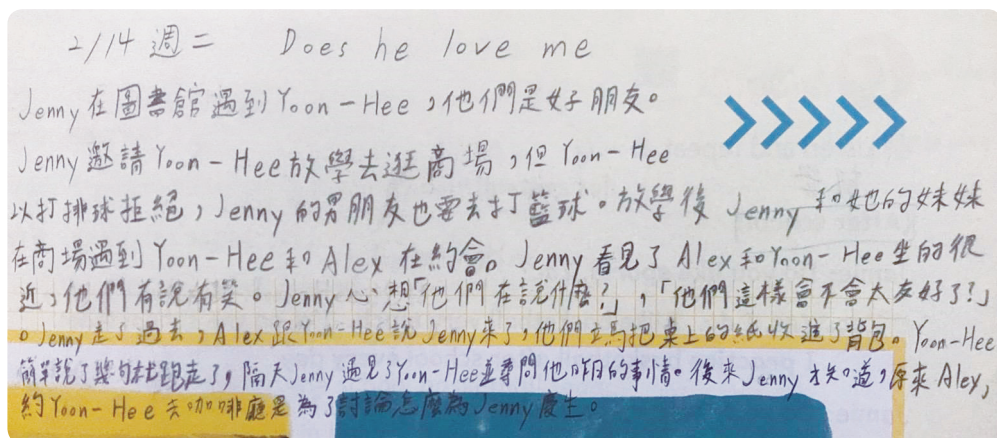 2/14 週二 Does he love me
Jenny在圖書館遇到Yoon-Hee，他們是好朋友。
Jenny邀請Yoon-Hee放學去逛商場，但Yoon-Hee
以打排球拒絕，Jenny的男朋友也要去打籃球。放學後Jenny和她的妹妹
在商場遇到Yoon-Hee和Alex在約會。Jenny看見了Alex和Yoon-Hee坐的很
近，他們有說有笑。Jenny心想「他們在說什麼？」，「他們這樣會不會太友好了？」
。Jenny走了過去，Alex跟Yoon-Hee說Jenny來了，他們立馬把桌上的紙收進了背包。Yoon-Hee
簡單說了幾句就跑走了，隔天Jenny遇見了Yoon-Hee並尋問他昨日的事情。後來Jenny才知道，原來Alex，
約Yoon-Hee去咖啡廳是為了討論怎麼為Jenny慶生。